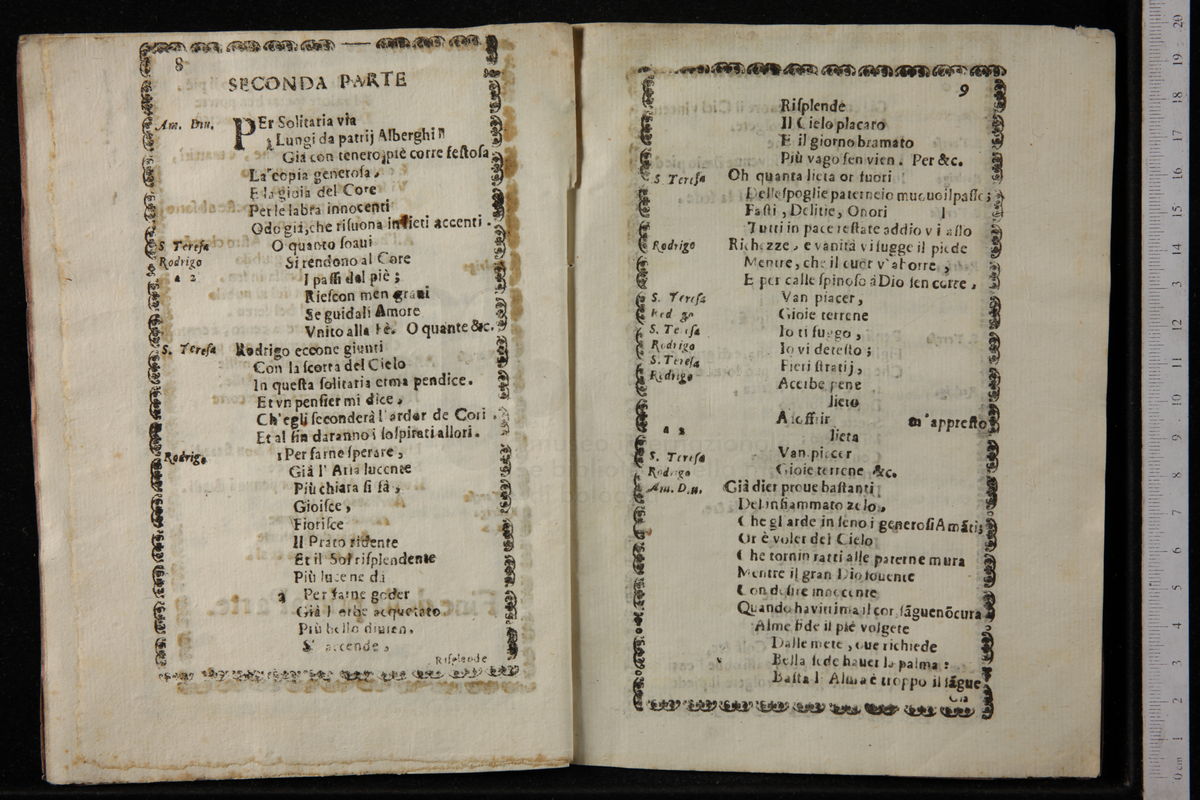 8
SECONDA PARTE
Am. Diu. PEr Solitaria via
Lungi da patrij Alberghi
Già con tenero piè corre festosa
La copia generosa,
E la gioia del Core
Per le labra innocenti
Odo già, che risuona in lieti accenti.
S. Teresa O quanto soaui
Rodrigo Si rendono al Core
a 2 I passi del piè;
Riescon men graui
Se guidali Amore
Vnito alla Fè. O quante &c.
S. Teresa Rodrigo eccone giunti
Con la scorta del Cielo
In questa solitaria erma pendice.
Et vn pensier mi dice,
Ch'egli seconderà l'ardor de Cori.
Et al fin daranno i sospirati allori.
Rodrigo Per farne sperare,
Già l'Aria lucente
Più chiara si fà,
Gioisce,
Fiorisce
Il Prato ridente
Et il Sol risplendente
Più luce ne dà
2 Per farne goder
Già l'orbe acquetato
Più bello diuien,
S'accende,
Risplende
9
Risplende
Il Cielo placato
E il giorno bramato
Più vago sen vien. Per &c.
S. Teresa Oh quanta lieta or fuori
Delle spoglie paterne io muouo il passo;
Fasti, Delitie, Onori
Tutti in pace restate addio vi lasso
Rodrigo Richezze, e vanità vi fugge il piede
Mentre, che il cuor v'aborre,
E per calle spinoso à Dio sen corre.
S. Teresa Van piacer,
Rodrigo Gioie terrene
S. Teresa Io ti fuggo,
Rodrigo Io vi detesto;
S. Teresa Fieri stratij,
Rodrigo Acerbe pene
lieto
a 2 A soffrir m'appresto
lieta
S. Teresa Van piacer
Rodrigo Gioie terrene &c.
Am. Diu. Già dier proue bastanti
Del infiammato zelo,
Che gl'arde in seno i generosi Amãti;
Or è voler del Cielo
Che tornin ratti alle paterne mura
Mentre il gran Dio souente
Con desire innocente
Quando hà vittima il cor, sãgue nõ cura
Alme fide il piè volgete
Dalle mete, oue richiede
Bella fede hauer la palma:
Basta l'Alma è troppo il sãgue